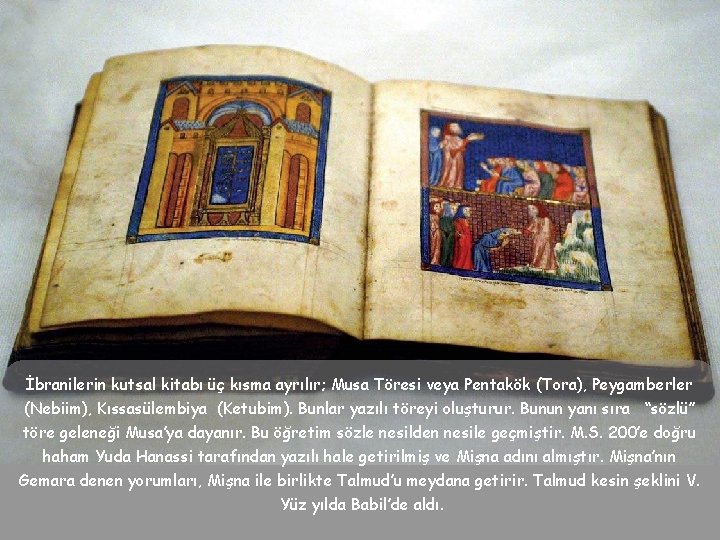 İbranilerin kutsal kitabı üç kısma ayrılır; Musa Töresi veya Pentakök (Tora), Peygamberler
(Nebiim), Kıssasülembiya (Ketubim). Bunlar yazılı töreyi oluşturur. Bunun yanı sıra “sözlü”
töre geleneği Musa’ya dayanır. Bu öğretim sözle nesilden nesile geçmiştir. M.S. 200’e doğru
haham Yuda Hanassi tarafından yazılı hale getirilmiş ve Mişna adını almıştır. Mişna’nın
Gemara denen yorumları, Mişna ile birlikte Talmud’u meydana getirir. Talmud kesin şeklini V.
Yüz yılda Babil’de aldı.